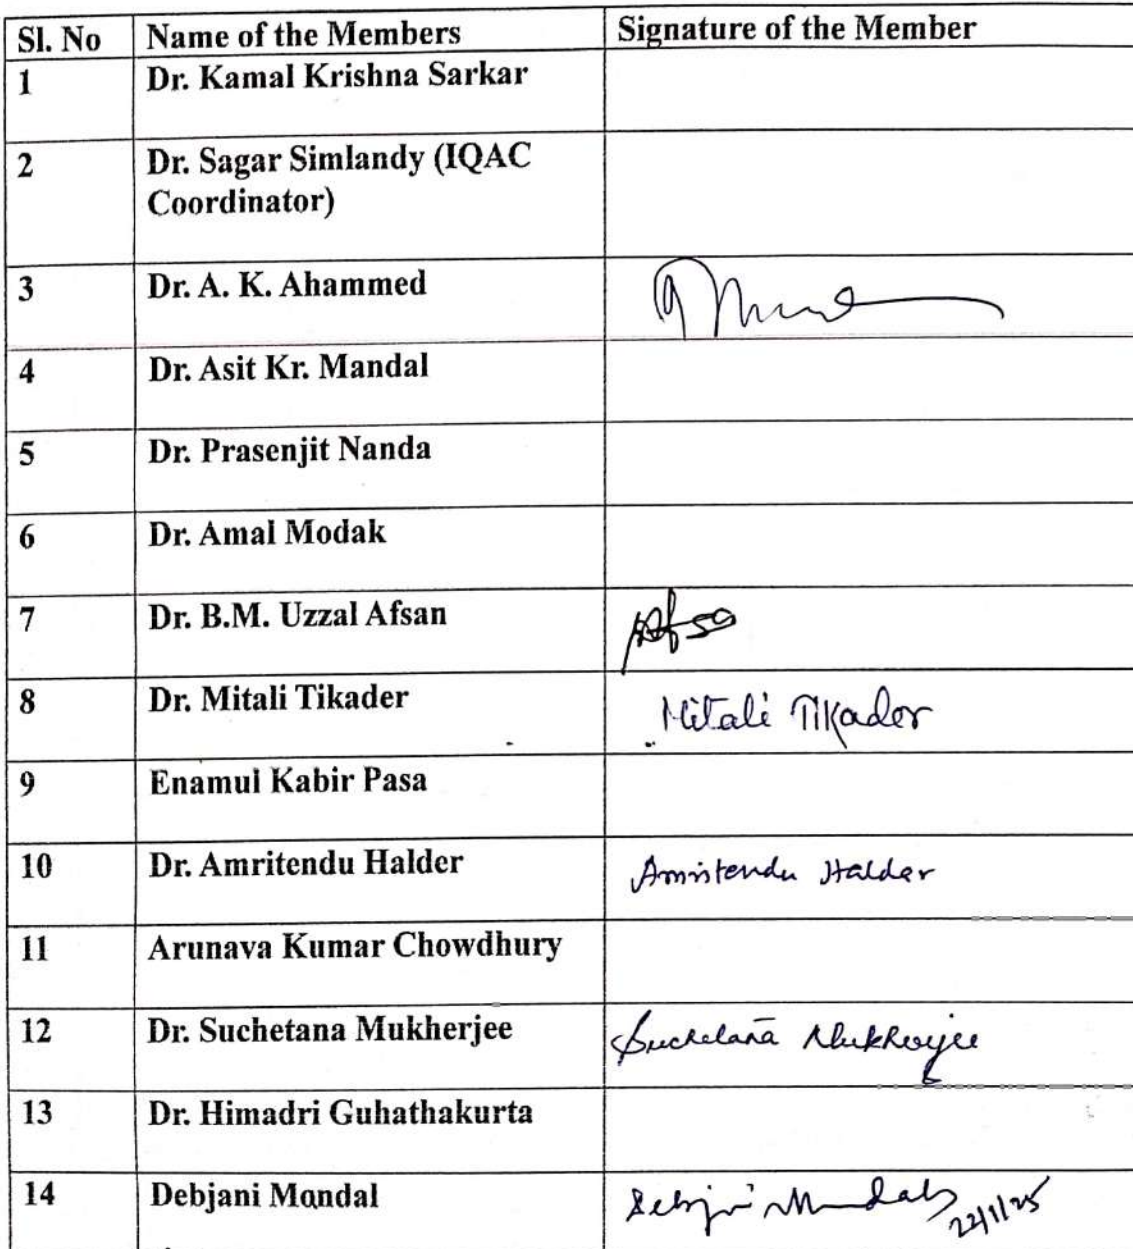 Sl. No Name of the Members Signature of the Member
1 Dr. Kamal Krishna Sarkar
2 Dr. Sagar Simlandy (IQAC
Coordinator)
3 Dr. A. K. Ahammed
4 Dr. Asit Kr. Mandal
5 Dr. Prasenjit Nanda
6 Dr. Amal Modak
7 Dr. B.M. Uzzal Afsan
8 Dr. Mitali Tikader Mitali Tikader
9 Enamul Kabir Pasa
10 Dr. Amritendu Halder Amritendu Halder
11 Arunava Kumar Chowdhury
12 Dr. Suchetana Mukherjee Suchetana Mukherjee
13 Dr. Himadri Guhathakurta
14 Debjani Mandal Debjani Mandal 22/1/25